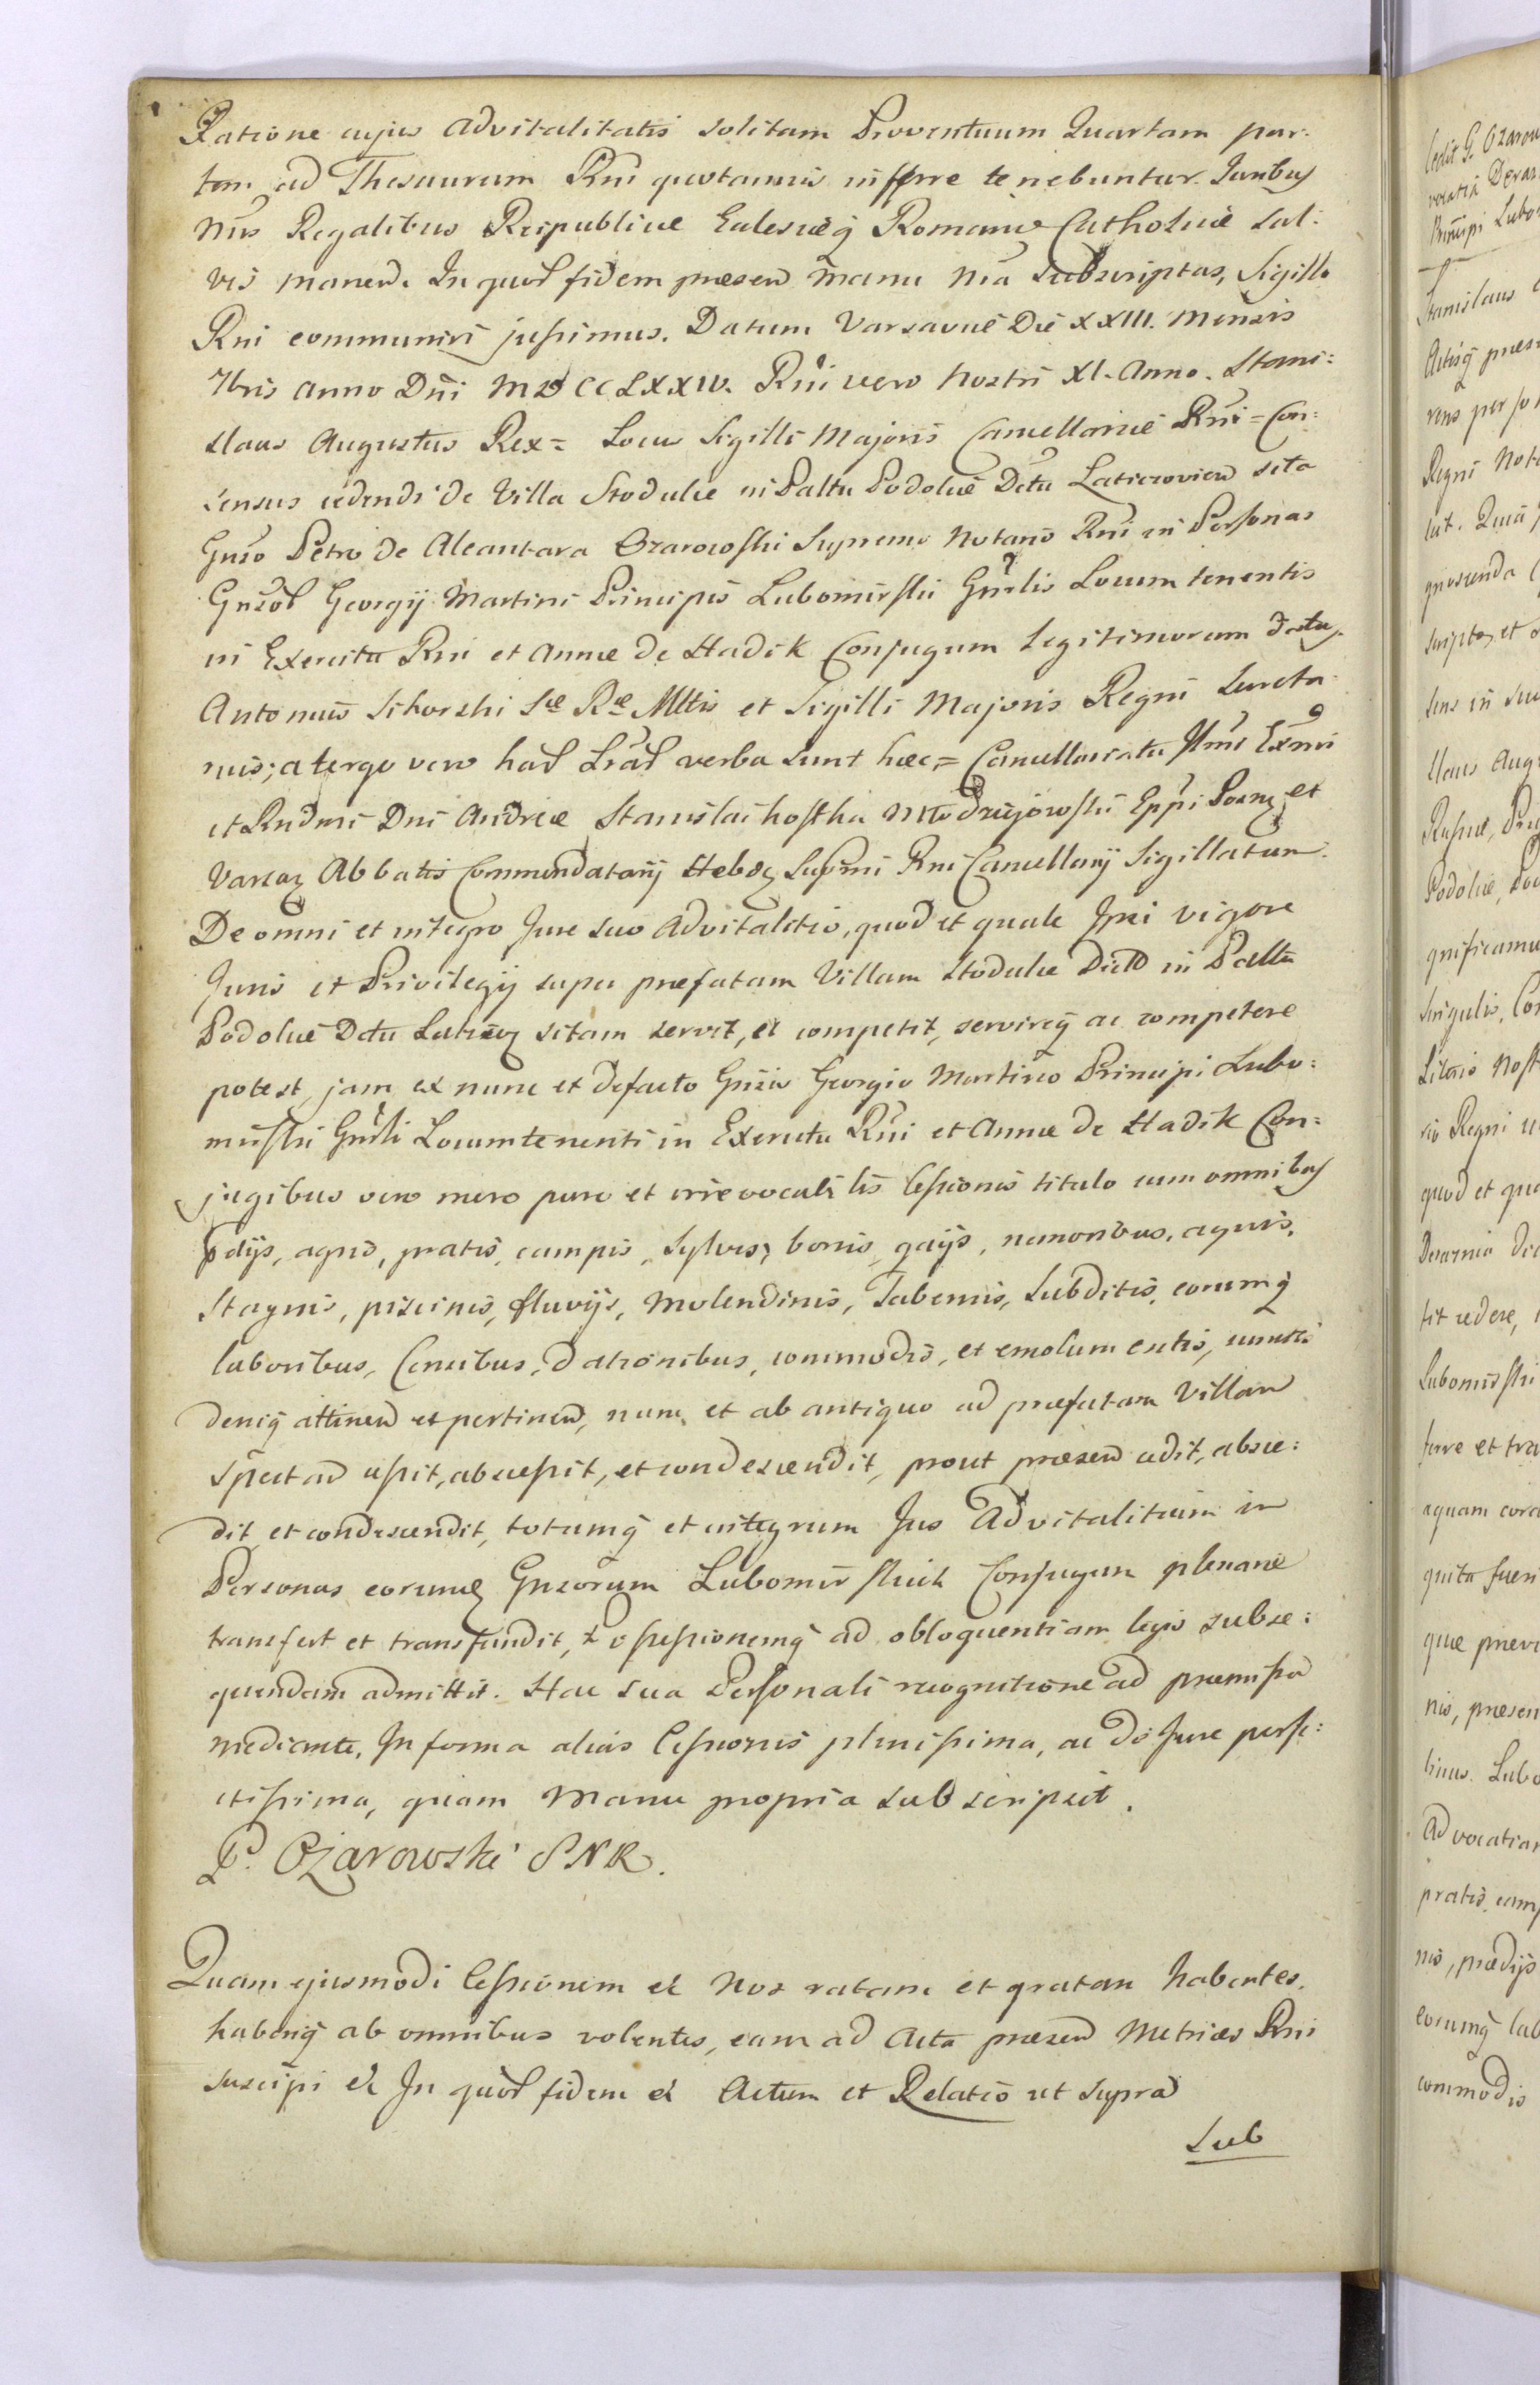 Ratione cujus advitalitatis solitam Proventuum Quartam par:
tem ad Thesaurum Rni quotannis inferre tenebuntur. Juribus
Nris Regalibus Reipublicae Eclesiaeq Romanae Catholicae Sal:
vis manen. In quor fidem praesen manu nra Subscriptas, Sigillo
Rni communiri jussimus. Datum Varsaviae Die XXIII. Mensis
7bris Anno Dni MDCCLXXIV. Rni vero Nostri XI. Anno. Stani:
slaus Augustus Rex = Locus Sigilli Majoris Cancellariae Rni = Con:
sensus cedendi de Villa Stodulce in Palttu Podoliae Dctu Laticzovien sita
Gnso Petro de Alcantara Ozarowski Supremo Notario Rni in Personas
Gnsor Georgij Martini Principis Lubomirskii Gnrlis Locum tenentis
in Exercitu Rni et Annae de Hadik Conjugum Legitimorum datus.
Antonius Sikorski Sae Rae Mttis et Sigilli Majoris Regni Secreta
rius; a tergo vero har Lrar verba sunt haec = Cancellariatu Illmi Exmi
et Rndmi Dni Andreae Stanislai Kostka Młodziejowskii Eppi Posnq et
Varsaq Abbatis Commendatarij Hebdq Supremi Rni Cancellarij Sigillatum.
De omni et integro Jure suo Advitalitio, quod et quale Ipsi vigore
Juris et Privilegij super praefatam Villam Stodulce Dicto in Palttu
Podoliae Dctu Laticzq sitam servit, et competit, servireq ac competere
potest, jam ex nunc et defacto Gnso Georgio Martino Principi Lubo:
mirskii Gnrli Locumtenenti in Exercitu Rni et Annae de Hadik Con:
jugibus vero mero puro et irrevocabilis Cessionis titulo cum omnibus
pdijs, agris, pratis, campis, Sylvis, borris, gajis, nemoribus, aquis,
Stagnis, piscinis, fluvijs, Molendinis, Tabernis, Subditis, eorumq
laboribus, Censibus, dationibus, commodis, et emolumentis, cunctis
deniq attinen et pertinen, nunc et ab antiquo ad praefatam Villam
Spectan cessit, abscessit, et condescendit, prout praesen cedit, absce:
dit, et condescendit, totumq et integrum Jus Advitalitium in
Personas eorundq Gnsorum Lubomirskich Conjugum plenarie
transfert et transfundit, Possessionemq ad obloquentiam legis subse:
quendam admittit. Hac sua Personali recognitione ad praemissa
mediante, In forma alias Cessionis plenissima, ac de Jure perfe:
ctissima, quam Manu propria subscripsit.
P. Ożarowski SNR.
Quam ejusmodi Cessionem et Nos ratam et gratam habentes,
haberiq ab omnibus volentes, eam ad Acta praesen Metrices Rni
suscipi et In quor fidem et Actum et Relatio ut supra
Sub